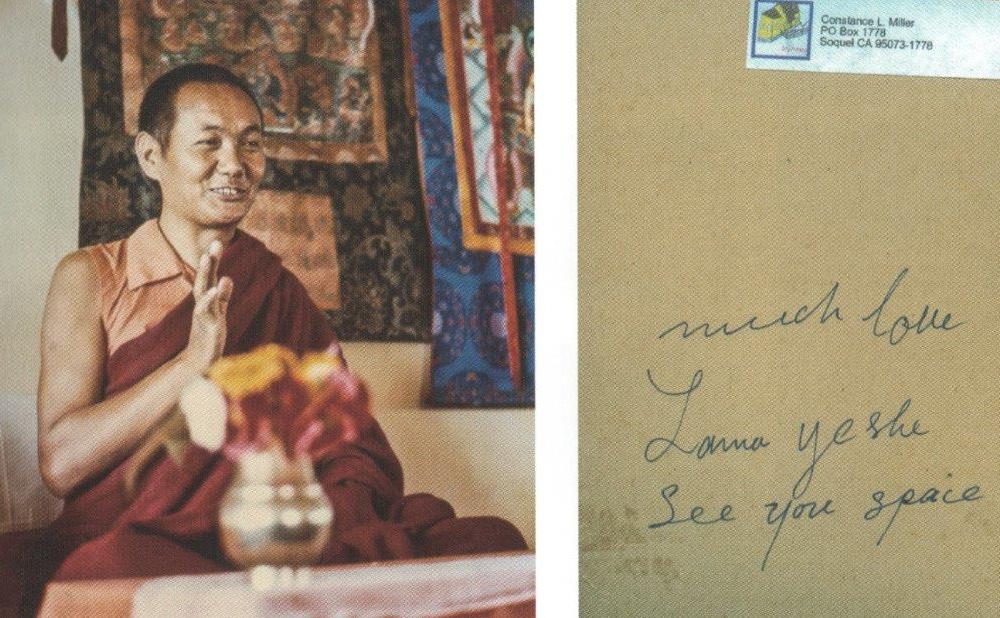 Constance L. Miller
PO Box 1778
Soquel CA 95073-1778
much love
Lama yeshe
See you space